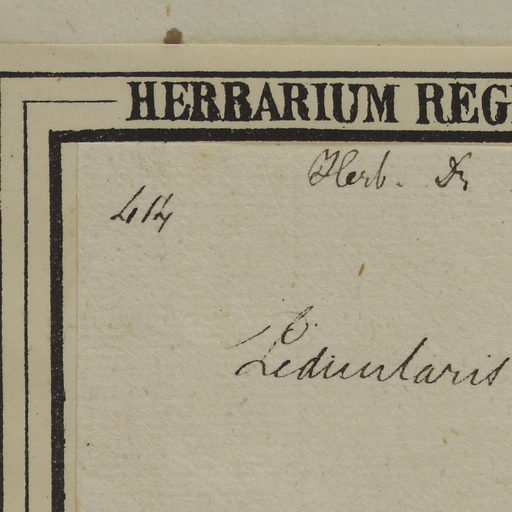 HERBARIUM REG
Herb. Dr
414
Pedicularis